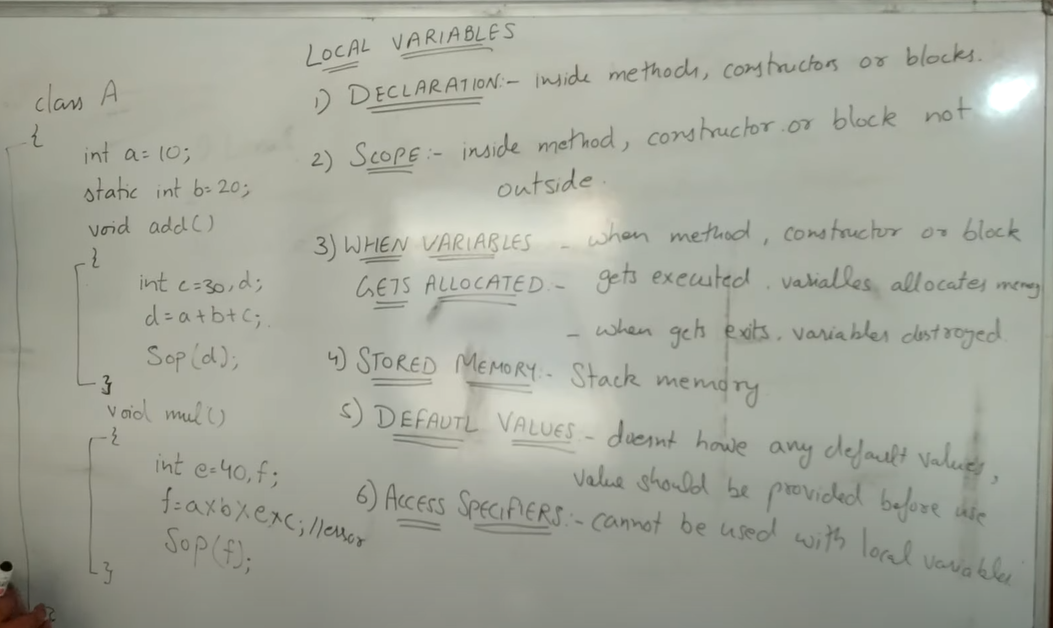 class A
{
int a=10;
static int b=20;
void add()
{
int c=30,d;
d=a+b+c;
Sop(d);
}
void mul()
{
int e=40,f;
f=a×b×e×c; //error
Sop(f);
}
}
LOCAL VARIABLES
1) DECLARATION:- inside methods, constructors or blocks.
2) SCOPE:- inside method, constructor or block not
outside.
3) WHEN VARIABLES - when method, constructor or block
GETS ALLOCATED:- gets executed. variables allocates memory
- when gets exits. variables destroyed
4) STORED MEMORY:- Stack memory
5) DEFAUTL VALUES - doesnt have any default values,
value should be provided before use
6) ACCESS SPECIFIERS:- cannot be used with local variables